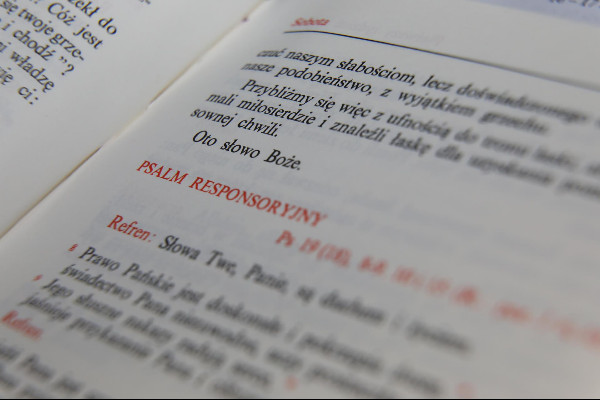 zekł do
Cóż jest
się twoje grze-
i chodź"?
władzę
ci:
17
Sobota
czuć naszym słabościom, lecz doświadczonego
nasze podobieństwo, z wyjątkiem grzechu.
Przybliżmy się więc z ufnością do tronu łaski,
mali miłosierdzie i znaleźli łaskę dla uzyskania
sownej chwili.
Oto słowo Boże.
PSALM RESPONSORYJNY
Ps 19 (18),
Refren: Słowa Twe, Panie, są duchem i życiem.
Prawo Pańskie jest doskonałe i pokrzepia duszę,
świadectwo Pana niezawodne,
Jego słuszne nakazy radują serce,
jaśnieje przykazanie Pana i
Refren.